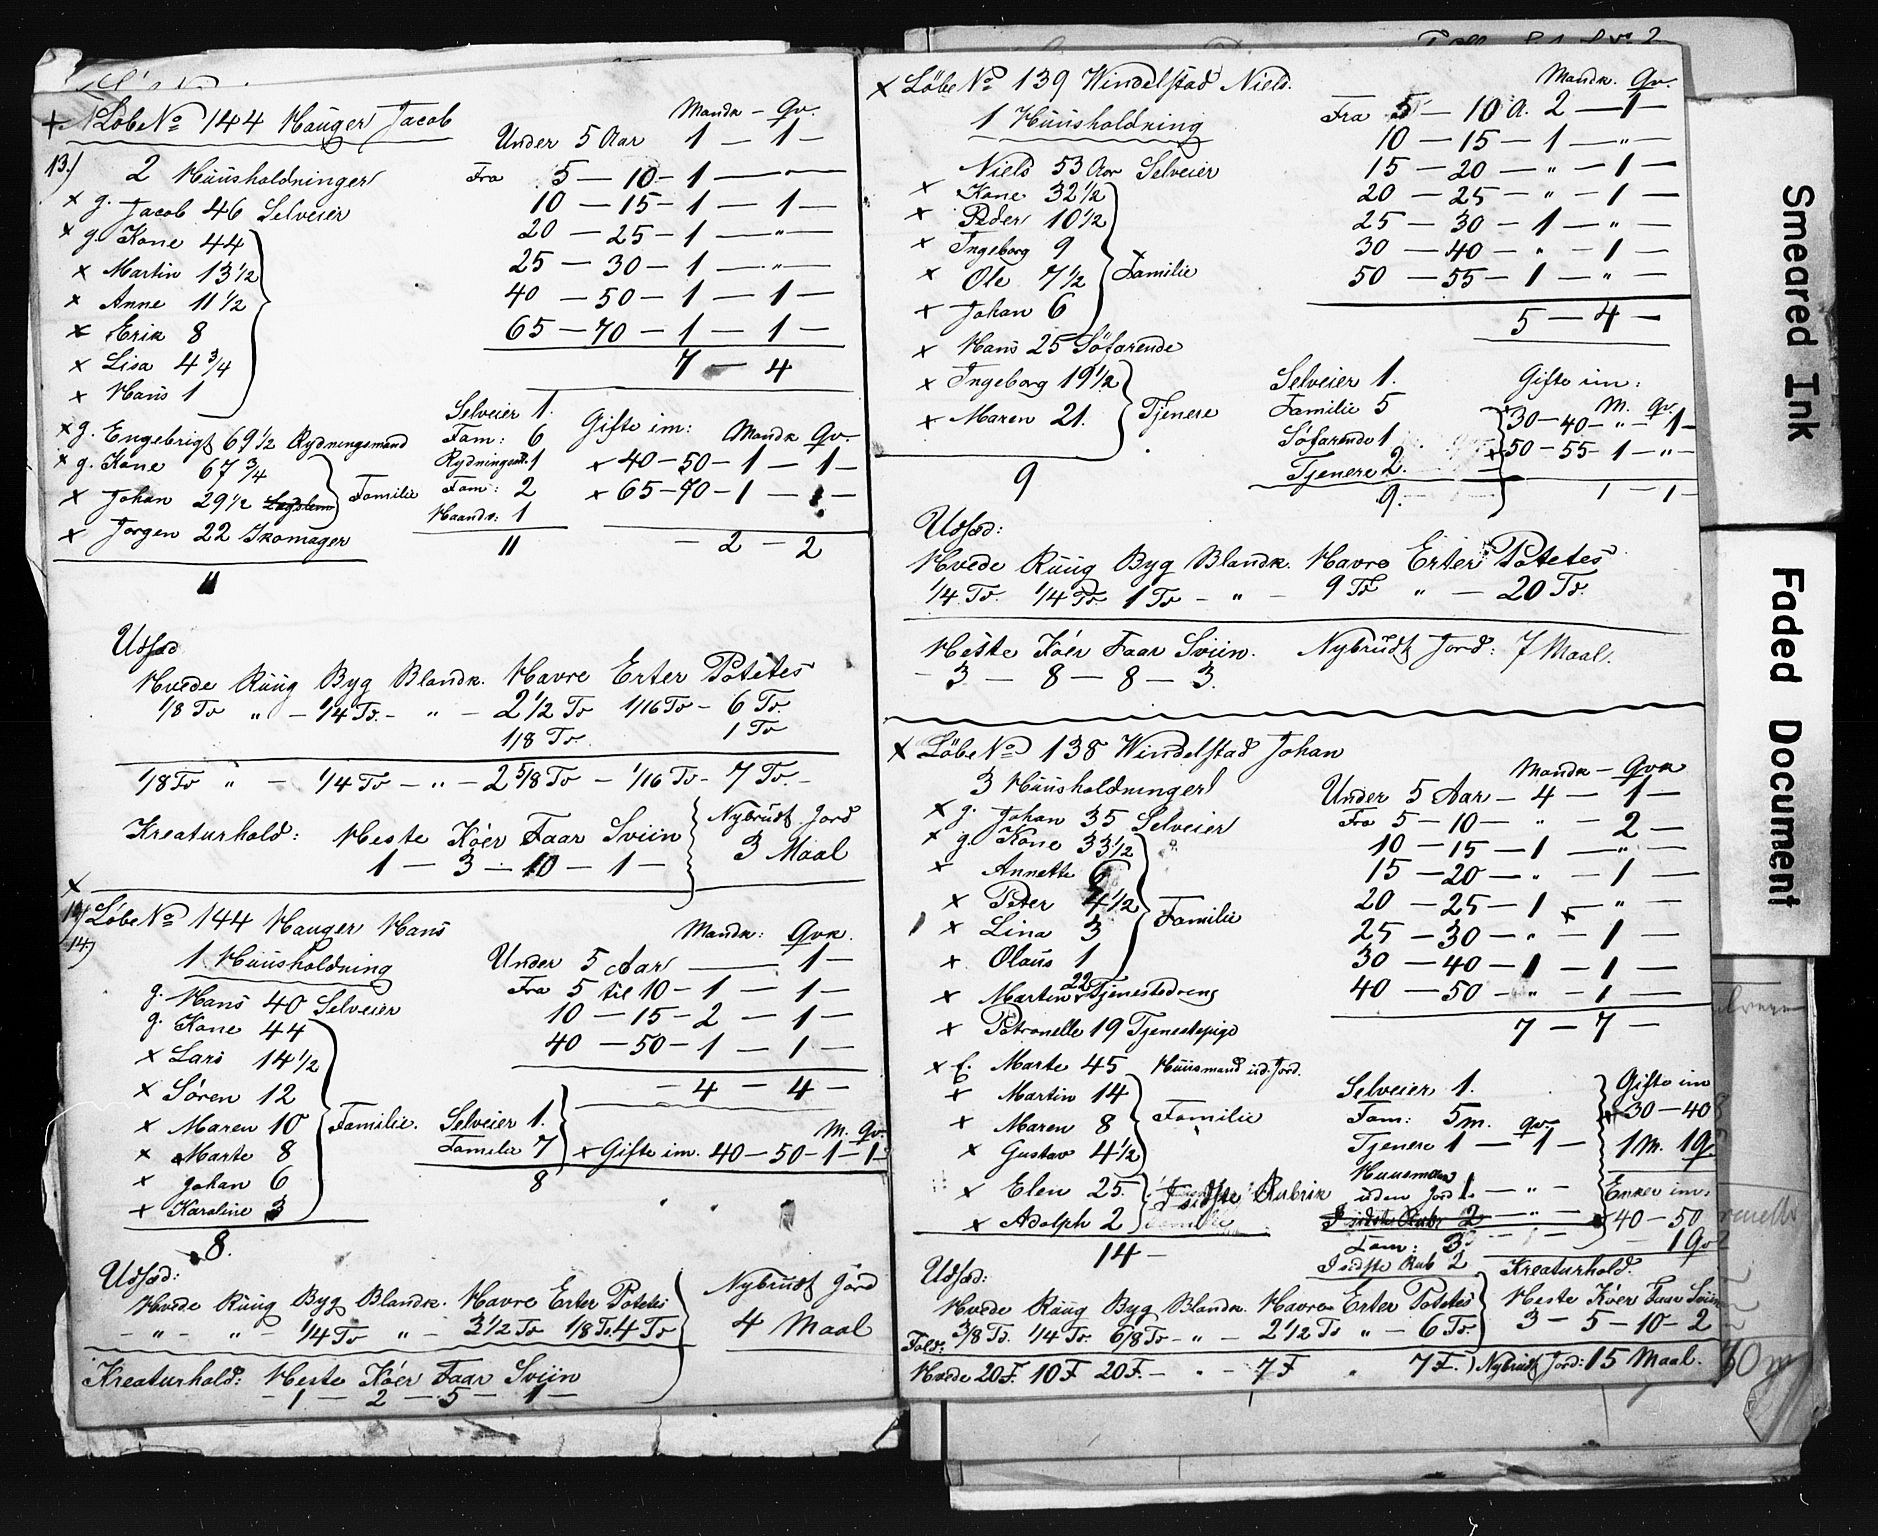 + Löbe No 144 Hauger Jacob
Mandk - Qv.
Under 5 Aar 1 - 1 -
13.) 2 Huusholdninger
Fra 5 - 10 - 1 - -
x g. Jacob 46 Selveier
10 - 15 - 1 - 1 -
x g. Kone 44
20 - 25 - 1 - " -
x Martin 13 1/2
25 - 30 - 1 - " -
x Anne 11 1/2
40 - 50 - 1 - 1 -
x Erik 8
65 - 70 - 1 - 1 -
x Lisa 4 3/4
7 - 4
x Hans 1
x g. Engebrigt 69 1/2 Rydningsmand
x g. Kone 67 3/4
x Johan 29 1/2 Familie
x Jørgen 22 Skomager
11
Selveier 1.
Fam: 6
Rydningsm. 1
Fam: 2
Haandv: 1
11
Gifte im: Mandk Qv.
x 40 - 50 - 1 - 1 -
x 65 - 70 - 1 - 1 -
- 2 - 2
Udsæd
Hvede Ruug Byg Blandk. Havre Erter Potetes
1/8 Tø " - 1/4 Tø. - " - 2 1/2 Tø 1/16 Tø - 6 Tø.
1/8 Tø. 1 Tø
1/8 Tø " - 1/4 Tø - " - 2 5/8 Tø - 1/16 Tø - 7 Tø. -
Kreaturhold: Heste Köer Faar Sviin
1 - 3 - 10 - 1 -
Nybrudt Jord
3 Maal
x
14) Löbe No 144 Hauger Hans
Mandk: Qvk.
1 Huusholdning
Under 5 Aar - 1 -
g. Hans 40 Selveier
Fra 5 til 10 - 1 - 1 -
g. Kone 44
10 - 15 - 2 - 1 -
x Lars 14 1/2
40 - 50 - 1 - 1 -
x Søren 12
- 4 - 4 -
x Maren 10
x Marte 8
x Johan 6
x Karoline 3
Familie.
8.
Selveier 1.
Familie 7
8
M. Qv.
x Gifte im. 40 - 50 - 1 - 1 -
Udsæd:
Hvede Ruug Byg Blandk. Havre Erter Potetes
- " - " - 1/4 Tø " - 3 1/2 Tø 1/8 Tø. 4 Tø
Nybrudt Jord
4 Maal
Kreaturhold: Heste Köer Faar Sviin
- 1 - 2 - 5 - 1 -
x Löbe No 139 Windelstad Niels.
Mandk. Qv.
1 Huusholdning
Fra 5 - 10 A. 2 - 1 -
10 - 15 - 1 - " -
Niels 53 Aar Selveier
15 - 20 - " - 1 -
x Kone 32 1/2
20 - 25 - " - 1 -
x Peder 10 1/2
25 - 30 - 1 - " -
x Ingeborg 9
30 - 40 - " - 1 -
x Ole 7 1/2 Familie
50 - 55 - 1 - " -
x Johan 6
5 - 4 -
x Hans 25 Söfarende
x Ingeborg 19 1/2
x Maren 21. Tjenere
9
Selveier 1.
Familie 5
Söfarende 1
Tjenere 2.
9.
Gifte im:
M. Qv.
30 - 40 - " - 1 -
50 - 55 - 1 - " -
1 - 1 -
Udsæd:
Hvede Ruug Byg Blandk. Havre Erter Potetes
1/4 Tø. 1/4 Tø 1 Tø - " - 9 Tø " - 20 Tø.
Heste Köer Faar Sviin. Nybrudt Jord: 7 Maal.
- 3 - 8 - 8 - 3.
x Löbe No 138 Windelstad Johan
Mandk - Qvk
3 Huusholdninger
Under 5 Aar - 4 - 1 -
x g. Johan 35 Selveier
Fra 5 - 10 - " - 2 -
x g. Kone 33 1/2
10 - 15 - 1 - " -
x Annette 6
15 - 20 - " - 1 -
x Peter 4 1/2
20 - 25 - 1 - " -
x Lina 3 Familie
25 - 30 - " - 1 -
x Olaus 1
30 - 40 - 1 - 1 -
x Martin 22 Tjenestedreng
40 - 50 - " - 1 -
x Petronelle 19 Tjenestepige
7 - 7 -
x E. Marte 45 Huusmand ud. Jord.
x Martin 14
x Maren 8 Familie
x Gustav 4 1/2
x Elen 25. sidste Rubrik
x Adolph 2
14 -
Selveier 1.
Fam: 5 m. qv.
Tjenere 1 - 1 -
Huusmænd
uden Jord 1 - " -
Fam: 3
I sidste Rub 2
Gifte im
30 - 40
1 M. 1 Q
Enker im.
40 - 50
- 1 Qv
Udsæd:
Hvede Ruug Byg Blandk. Havre Erter Potetes
3/8 Tø. 1/4 Tø. 6/8 Tø - " - 2 1/2 Tø " - 6 Tø.
Kreaturhold.
Heste Köer Faar Sviin
3 - 5 - 10 - 2
Fold:
Hvede 20 F. 10 F 20 F. - " - 7 F " 7 F. Nybrudt Jord: 15 Maal.
Smeared Ink
Faded Document